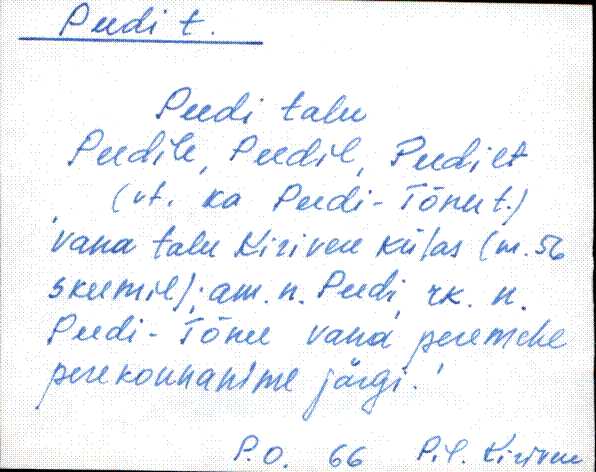 Peedi t.
Peedi talu
Peedile, Peedil, Peedilt
(vt. ka Peedi-Tõnu t.)
vana talu Kirivere külas (m. 56
skeemil); am. n. Peedi, rk. n.
Peedi-Tõnu vana peremehe
perekonnanime järgi.
P.O. 66 Pil. Kirivere